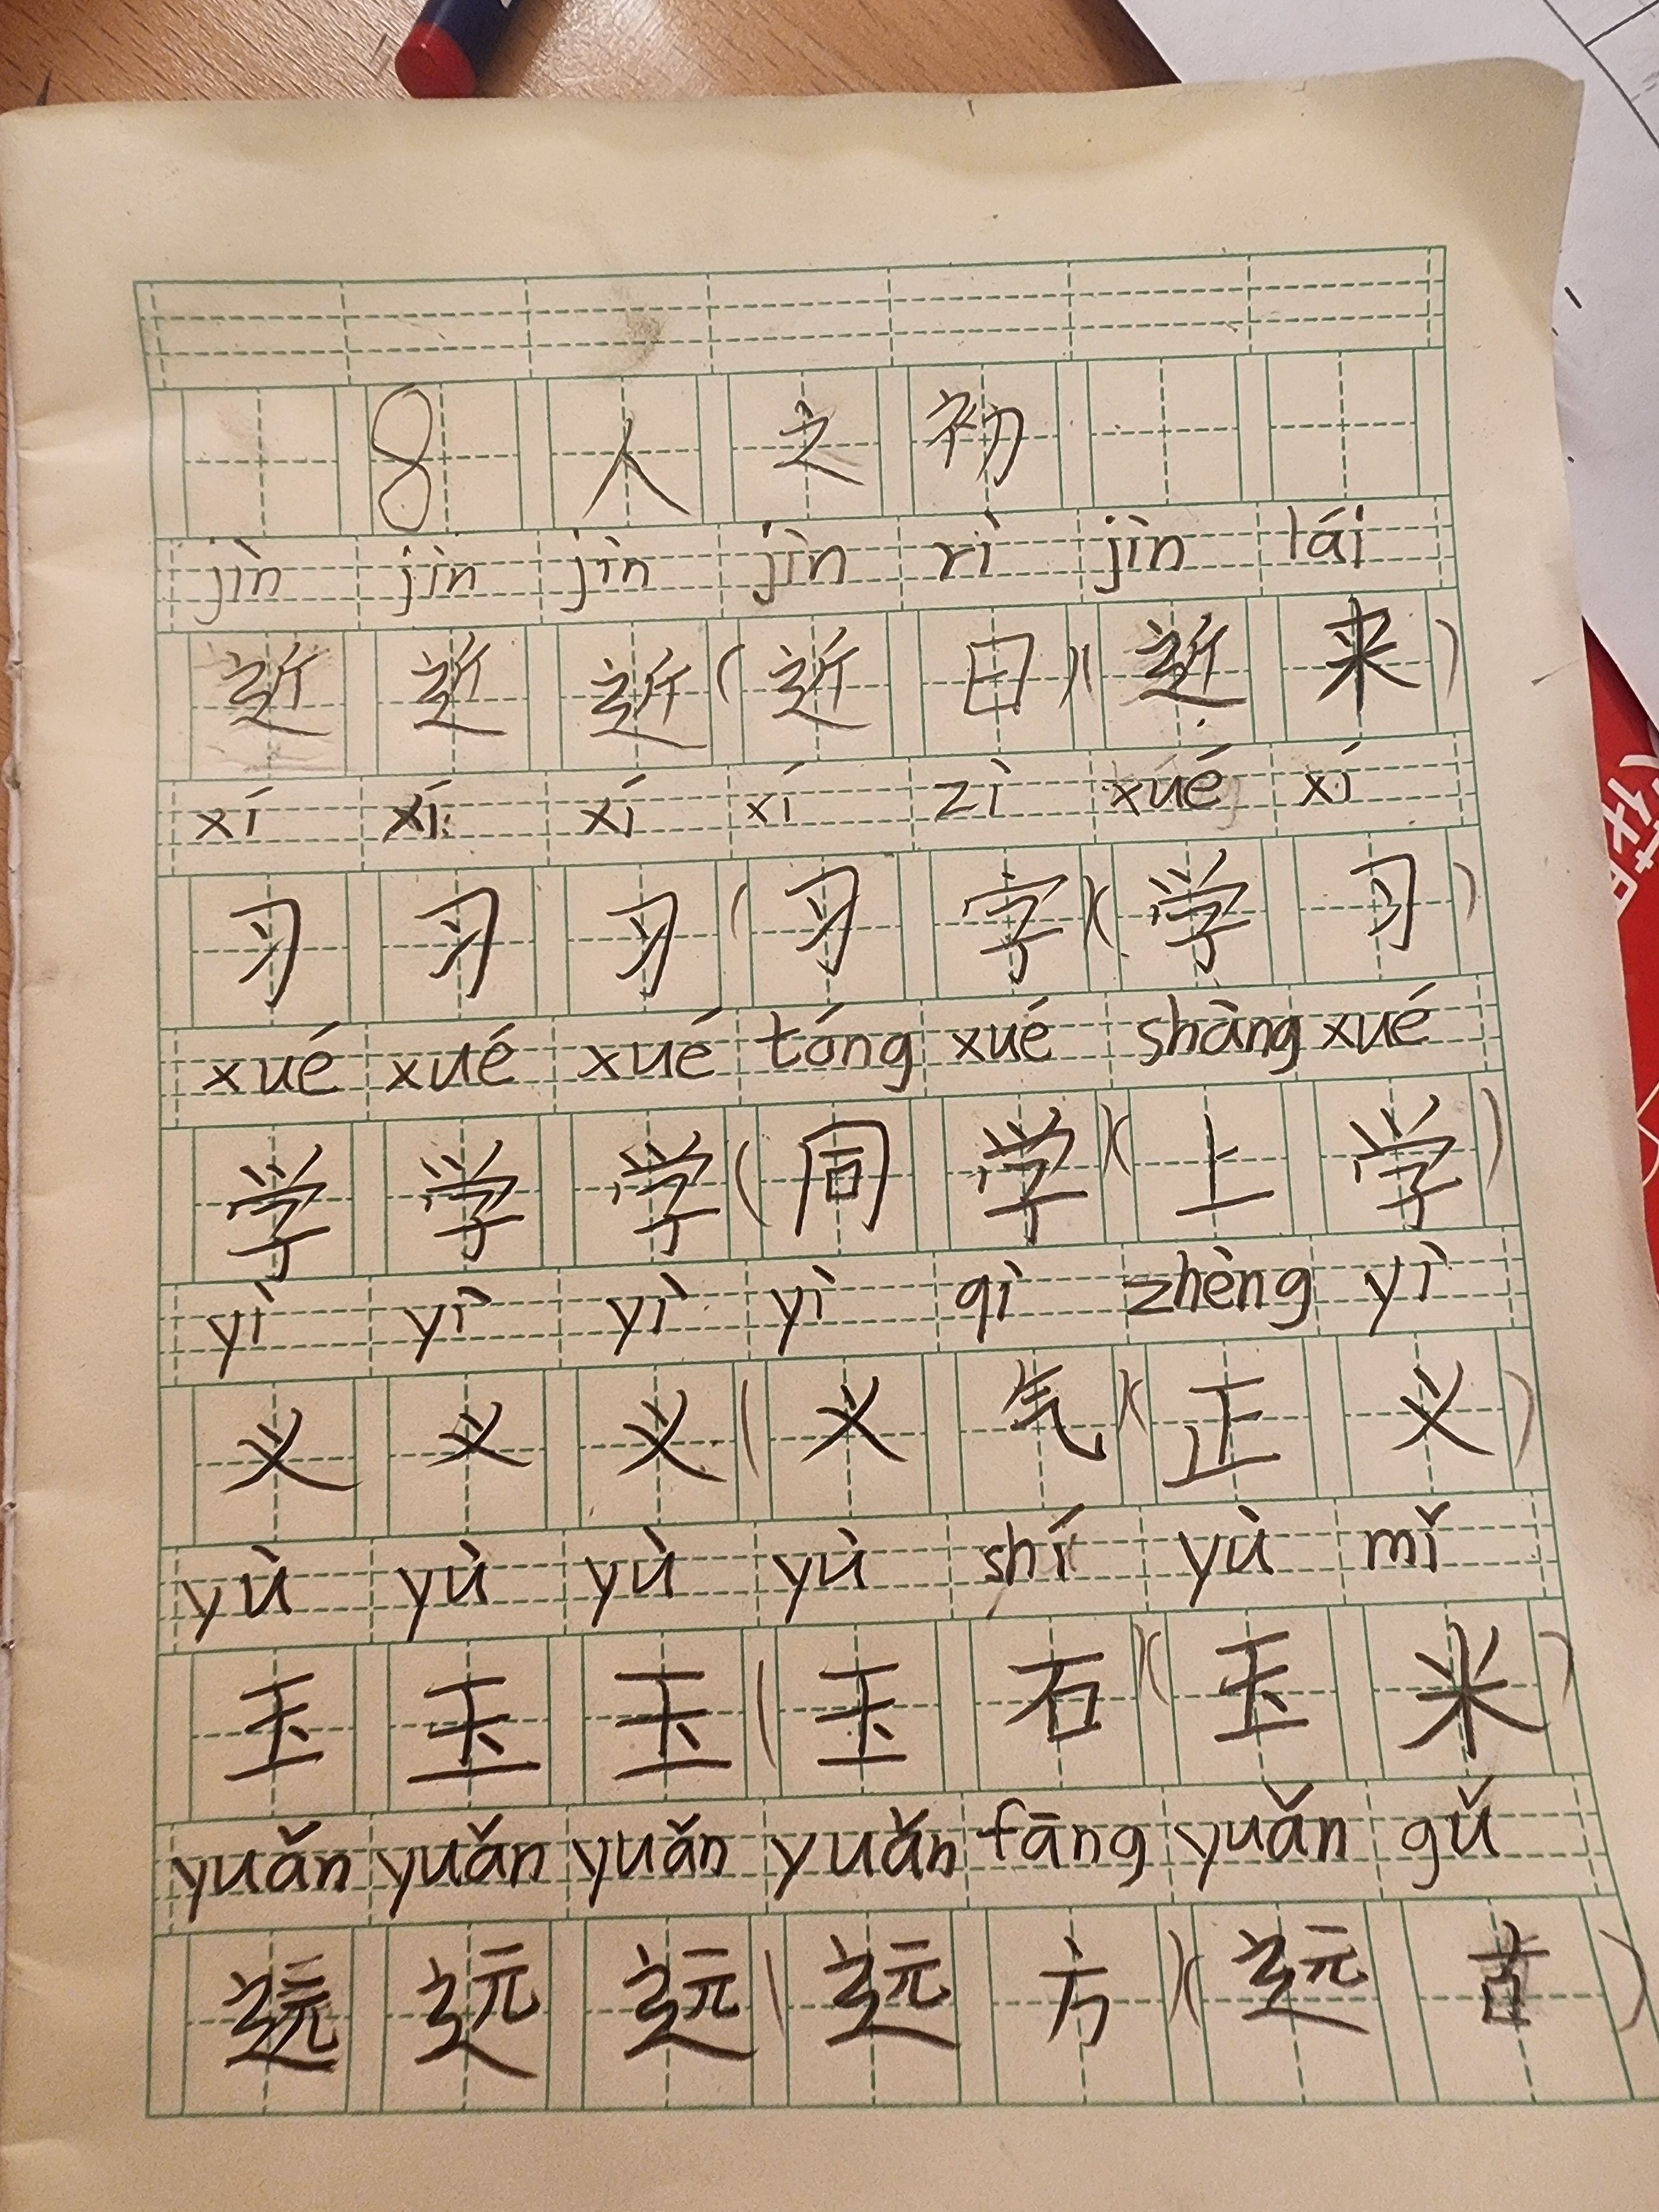 8人之初
jìn jìn jìn jìn rì jìn lái
近近近(近日)(近来)
xí xí xí xí zì xué xí
习习习(习字)(学习)
xué xué xué tóng xué shàng xué
学学学(同学)(上学)
yì yì yì yì qì zhèng yì
义义义(义气)(正义)
yù yù yù yù shí yù mǐ
玉玉玉(玉石)(玉米)
yuǎn yuǎn yuǎn yuǎn fāng yuǎn gǔ
远远远(远方)(远古)